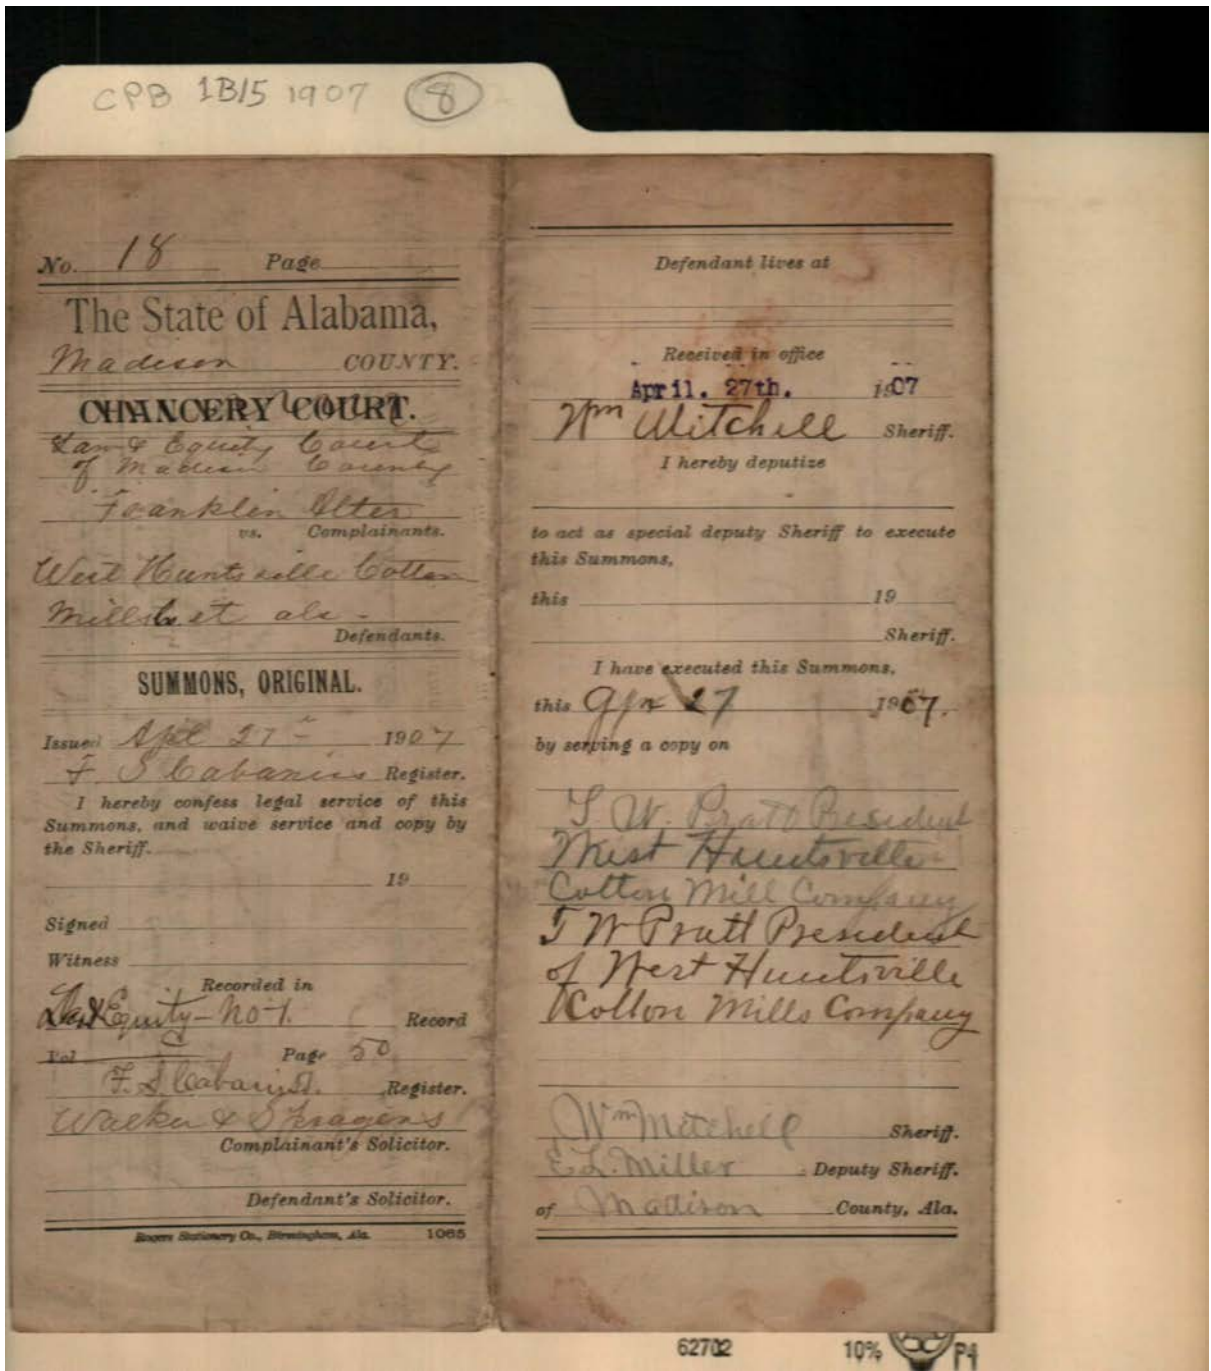 CPB 1B15 1907 8
No. 18 Page
The State of Alabama,
Madison COUNTY.
CHANCERY COURT.
Law & Equity Court
of Madison County
Franklin Olter
vs. Complainants.
West Huntsville Cotton
Mills et als -
Defendants.
SUMMONS, ORIGINAL.
Issued Apl 27 1907
F. S Cabaniss Register.
I hereby confess legal service of this
Summons, and waive service and copy by
the Sheriff.
19
Signed
Witness
Recorded in
Law & Equity - No 1. Record
Vol C Page 50
F. S Cabaniss. Register.
Walker & Spragins
Complainant's Solicitor.
Defendant's Solicitor.
Rogers Stationery Co., Birmingham, Ala. 1065
Defendant lives at
Received in office
April. 27th. 1907
Wm Mitchell Sheriff.
I hereby deputize
to act as special deputy Sheriff to execute
this Summons,
this 19
Sheriff.
I have executed this Summons,
this 27 1907.
by serving a copy on
T W. Pratt President
West Huntsville
Cotton Mill Company
T W Pratt President
of West Huntsville
Cotton Mills Company
Wm Mitchell Sheriff.
E. L. Miller Deputy Sheriff.
of Madison County, Ala.
62702 10% P4